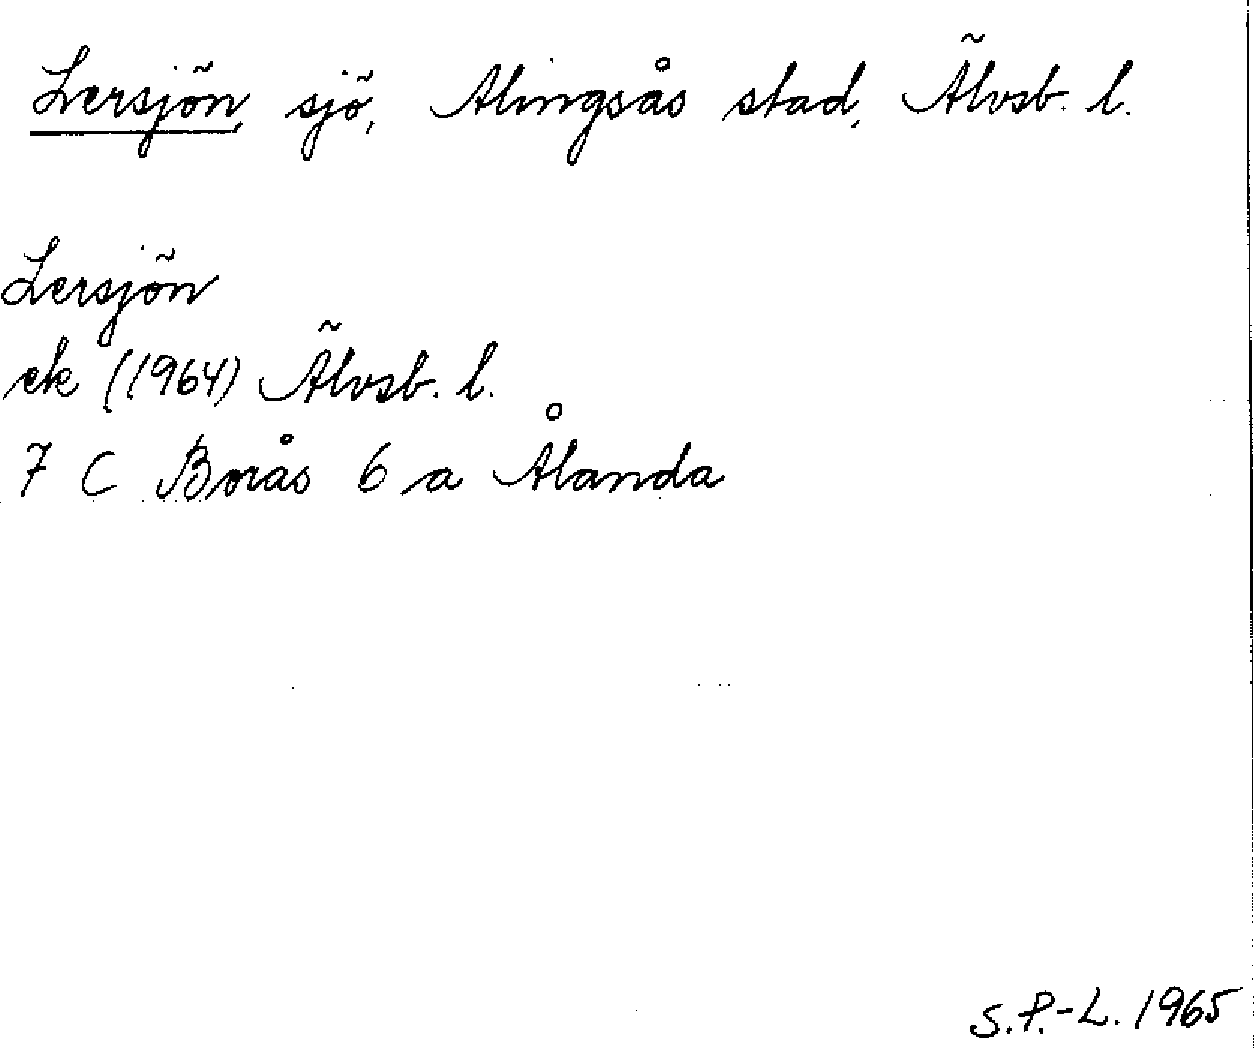 Lersjön, sjö, Alingsås stad, Älvsb. l.
Lersjön
ek (1964) Älvsb. l.
7 C Borås 6 a Ålanda
S.P.-L. 1965